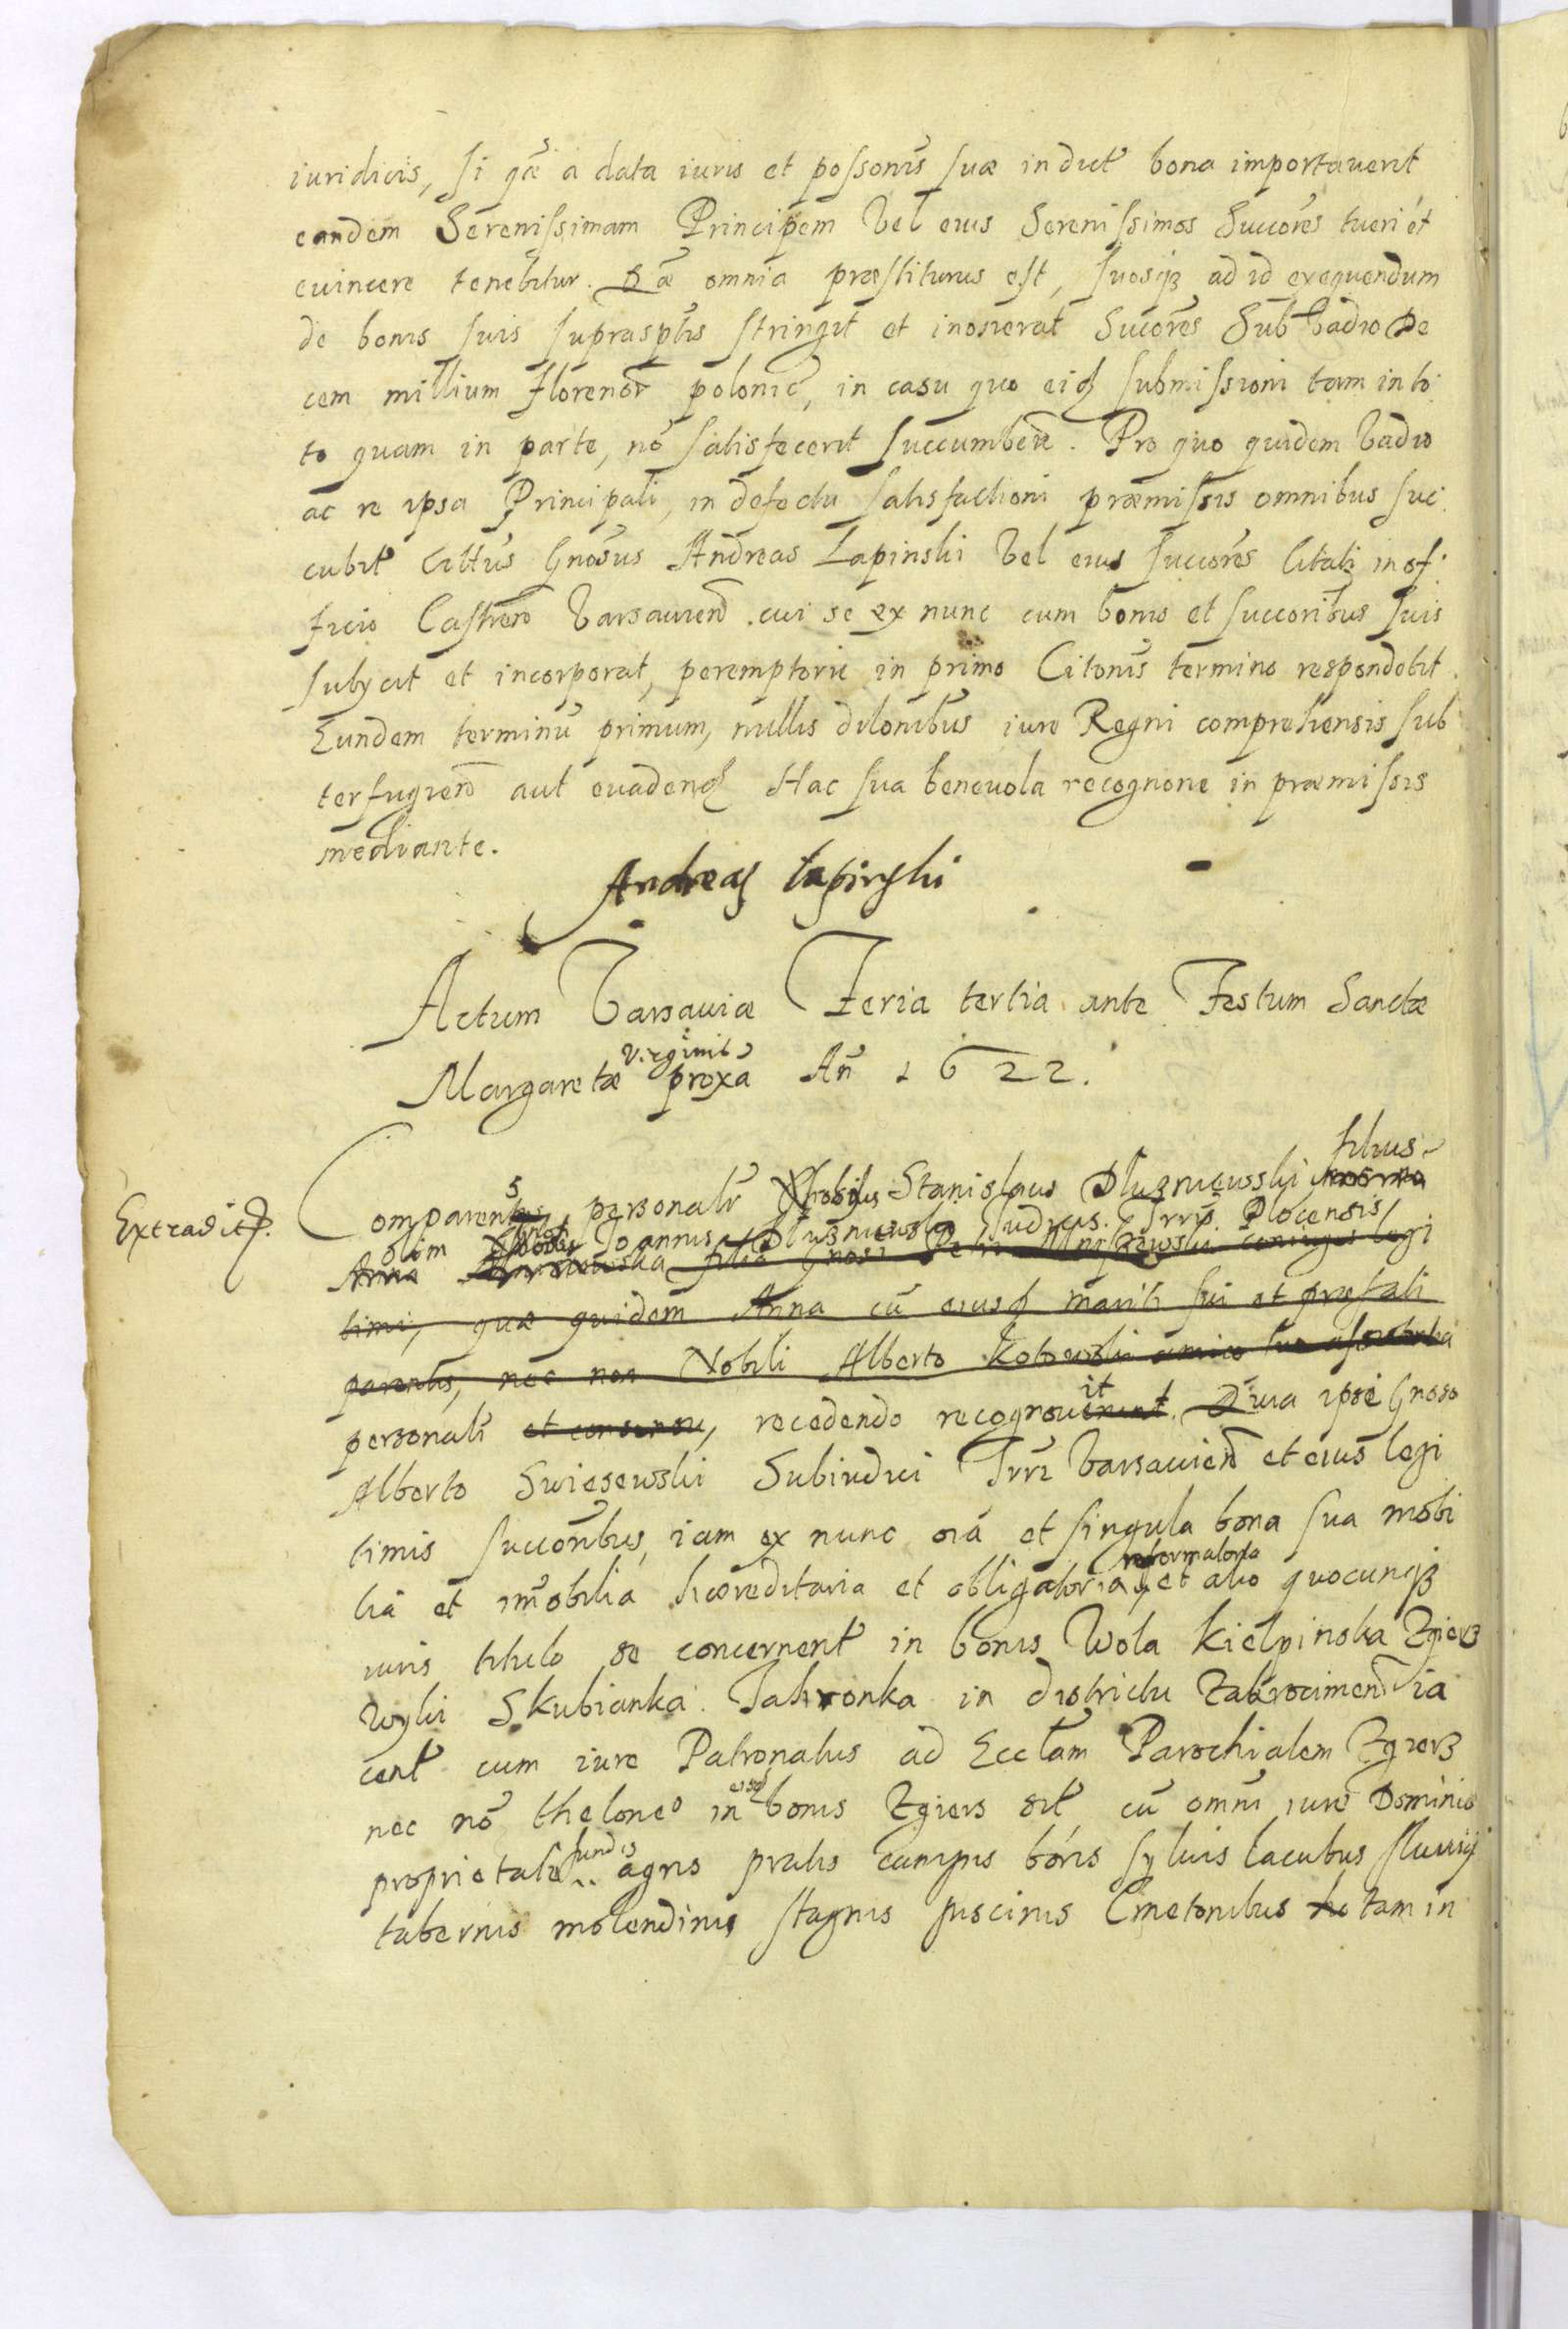 iuridicis, si quæ a data iuris et possonis suæ in dict bona importauerit
eandem Serenissimam Principem Vel eius Serenissimos Succores tueri et
euincere tenebitur. Quæ omnia præstiturus est, suosq3 ad id exequendum
de bonis suis suprasptis stringit et inoscerat Succores Sub Vadio De
cem millium florenor polonic, in casu quo eid submissioni tam in to
to quam in parte, nō satisfecerit succumben. Pro quo quidem Vadio
ac re ipsa Principali, in defectu satisfactioni præmissis omnibus suc
cubit Cittus Gnosus Andreas Lapinski Vel eius succores Citati in of
ficio Castren Varsauien. cui se ex nunc cum bonis et succoribus suis
subycit et incorporat, peremptorie in primo Citonis termino respondebit.
Eundem terminū primum, nullis dilonibus iure Regni comprehensis sub
terfugien aut euadend Hac sua beneuola recognone in præmissis
mediante.
Andreas Lapinski
Actum Varsauiæ Feria tertia ante Festum Sanctæ
Virginis
Margaretæ proxa An 1622.
filius
Extradit.
Comparens personalr Nobilis Stanislaus Dluzniewski
olim Gnosi Joannis Dluzniewski Judicis Trris Plocensis
Anna filia Gnosi Petri coniuges legi
timi, quæ quidem Anna cū eiusd mariti sui et prætali
parentis, nec non Nobili Alberto Kotowski amico suo
it
personalr et consensu, recedendo recognouerunt. Quia ipse Gnoso
Alberto Swiesewski Subiudici Trræ Varsauien et eius legi
timis succoribus, iam ex nunc oia et singula bona sua mobi
reformatoria
lia et imobilia hæreditaria et obligatoria et alio quocunq3
iuris titulo se concernent in bonis Wola Kielpinska Zgierz
Wylii Skubianka Jahronka in districtu Zakrocimen ia
cent cum iure Patronatus ad Ecclam Parochialem Zgierz
eisd
nec nō theloneo in bonis Zgiers sit cū omni iure Dominio
fundis
proprietate agris pratis campis boris syluis lacubus fluuijs
tabernis molendinis stagnis piscinis Cmetonibus tam in